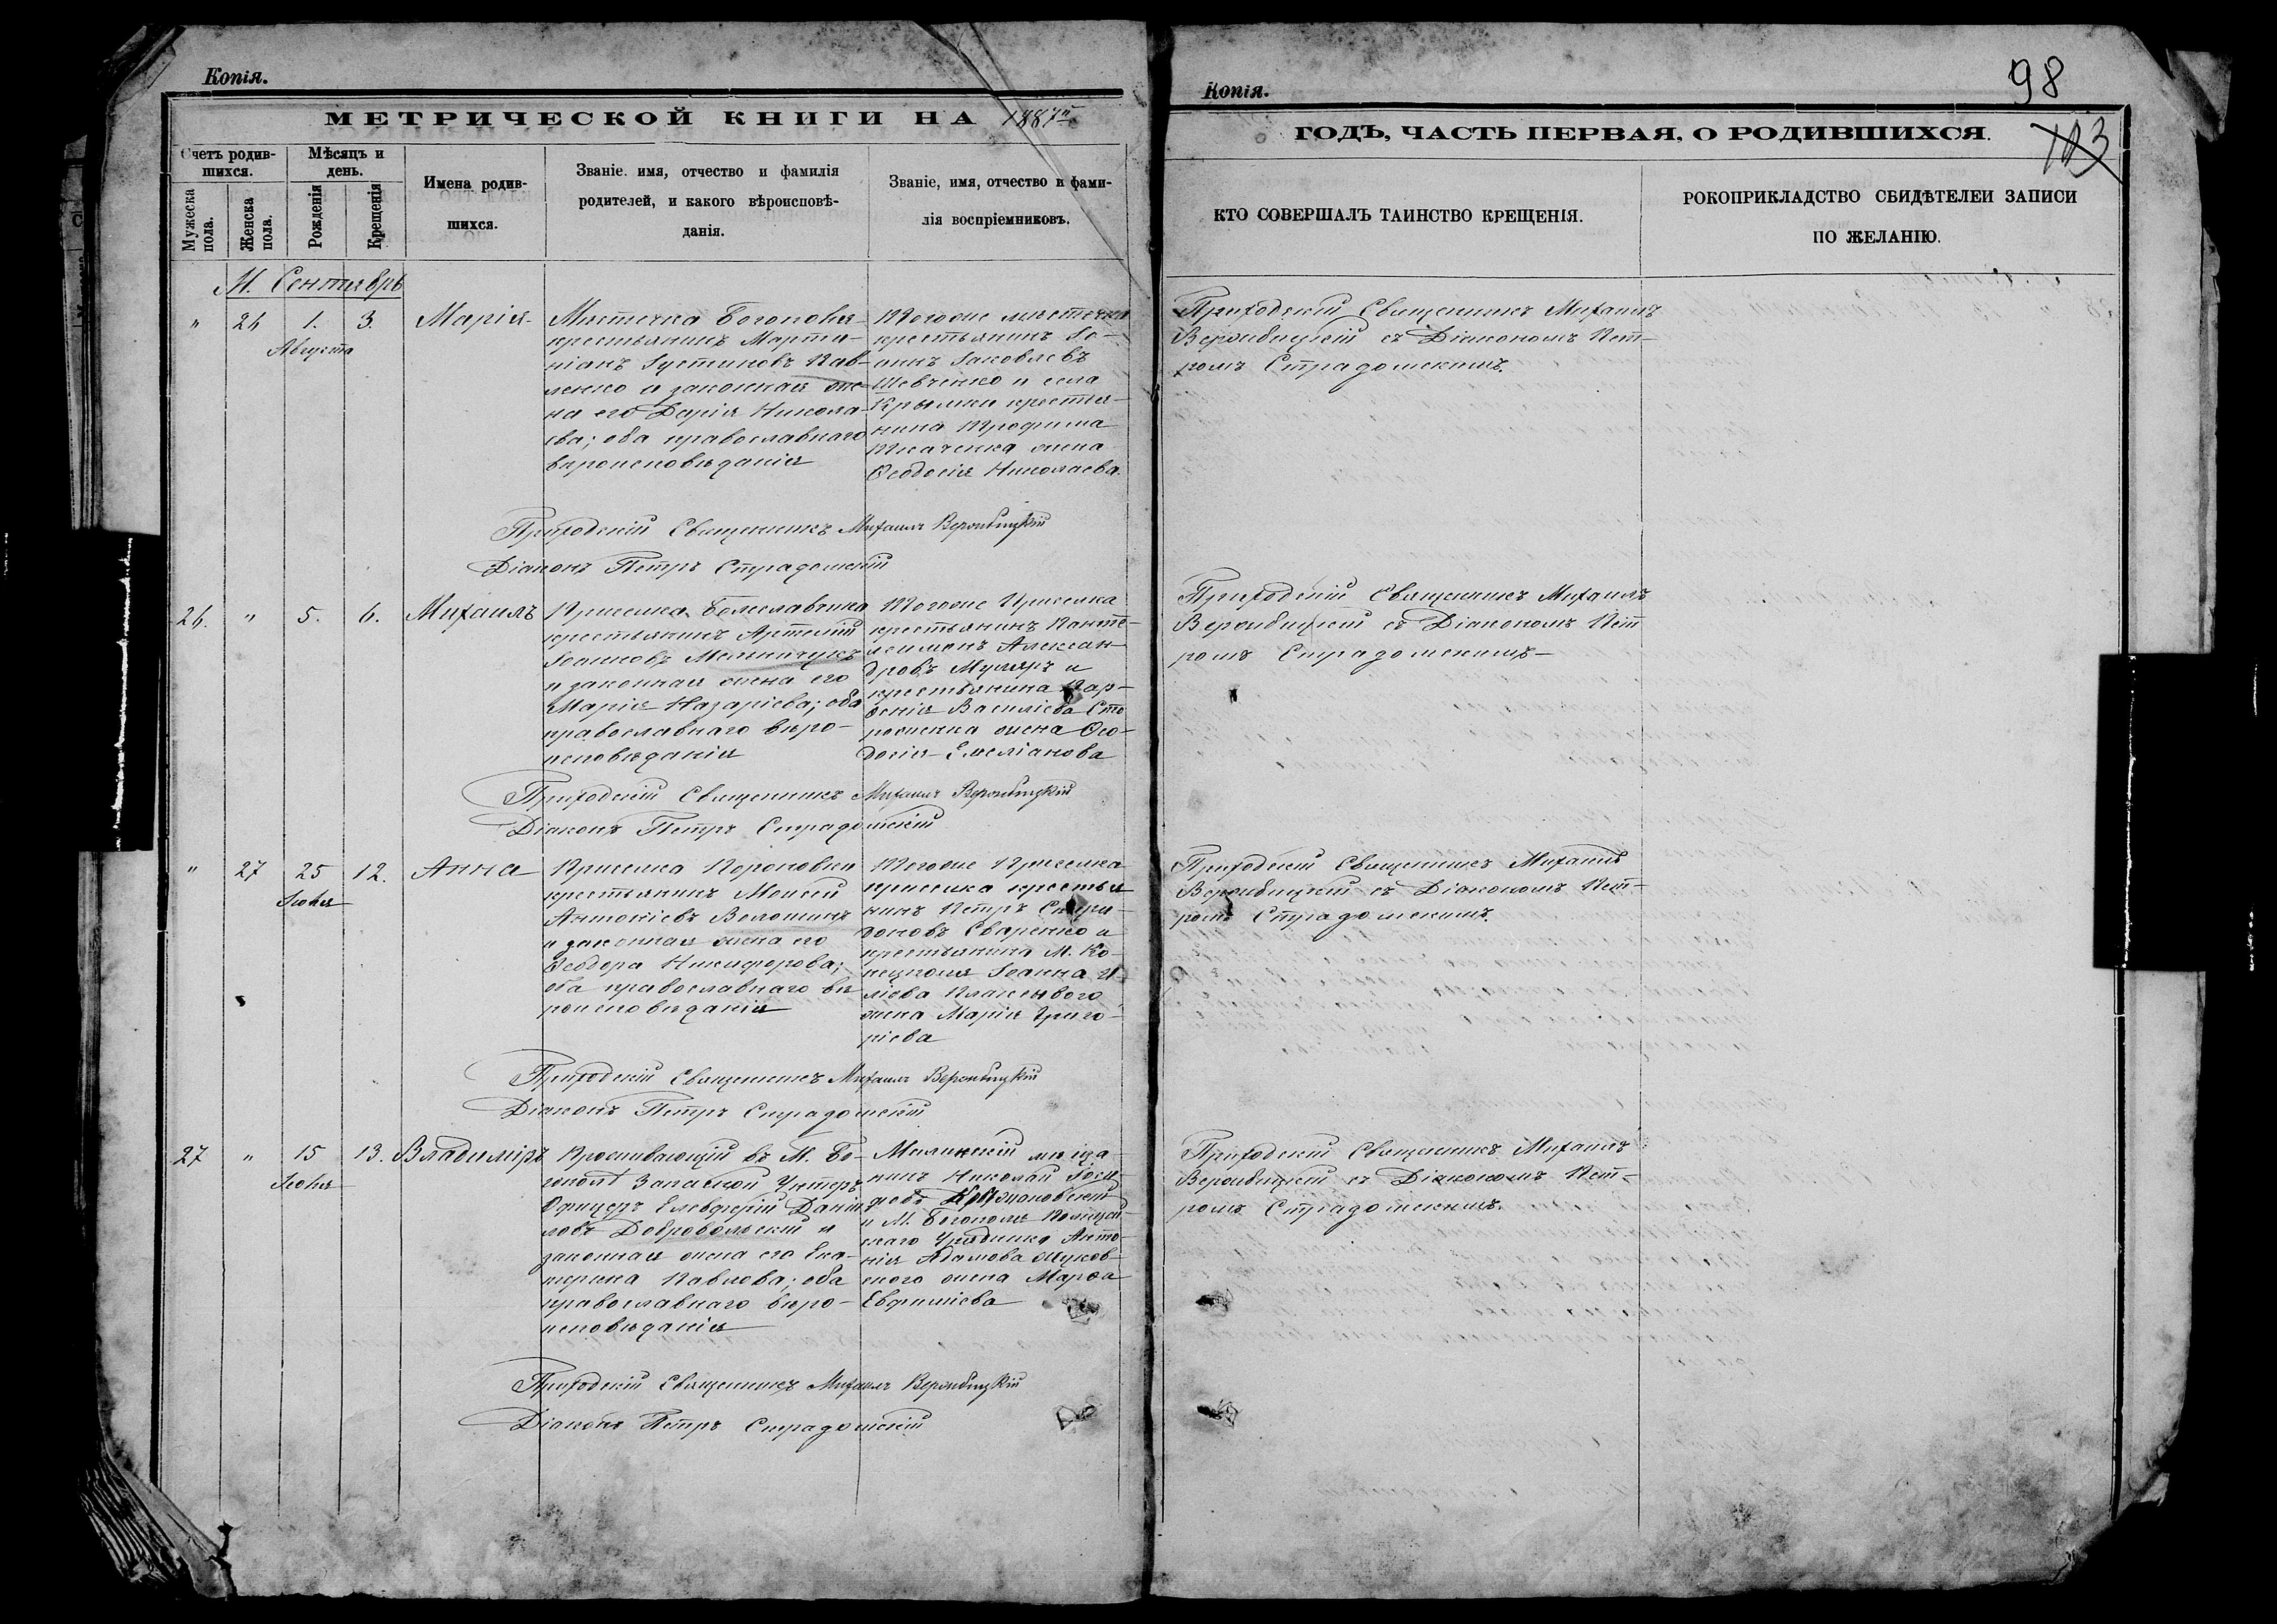 Копія.
МЕТРИЧЕСКОЙ КНИГИ НА 1887й
Счетъ родив-
шихся.
Мужеска
пола.
Женска
пола.
Мѣсяцъ и
день.
Рожденія
Крещенія
Имена родив-
шихся.
Званіе. имя, отчество и фамилія
родителей, и какого вѣроисповѣ-
данія.
Званіе, имя, отчество и фами-
лія воспріемниковъ.
М. Сентябрь
" 26 1. 3. Марія
Августа
Мѣстечка Богополя
крестьянинъ Марти-
ніанъ Іустиновъ Пав-
ленко и законная же-
на его Дарія Никола-
ева; оба православнаго
вѣроисповѣданія
Тогоже мѣстечка
крестьянинъ Іо-
аннъ Іаковлевъ
Шевченко и села
Крымки крестья-
нина Трофима
Ткаченка жена
Ѳеодосія Николаева.
Приходскій Священникъ Михаилъ Вержбицкій
Діаконъ Петръ Страдомскій
26. " 5. 6. Михаилъ
Приселка Болеславчика
крестьянинъ Артемій
Іоанновъ Мельничукъ
и законная жена его
Марія Назаріева; оба
православнаго вѣро-
исповѣданія
Тогоже Приселка
крестьянинъ Панте-
леимонъ Алексан-
дровъ Муляръ и
крестьянина Пар-
ѳенія Василіева Сто
роженка жена Ѳео-
досія Емеліанова
Приходскій Священникъ Михаилъ Вержбицкій
Діаконъ Петръ Страдомскій
" 27 25 12. Анна
Іюля
Приселка Короновки
крестьянинъ Моисей
Антоніевъ Волошинъ
и законная жена его
Ѳеодора Никифорова;
оба православнаго вѣ
роисповѣданія
Тогоже Приселка
приселка крестья
нинъ Петръ Спири-
доновъ Сваренко и
крестьянина М. Ко-
нецполя Іоанна И-
ліева Плаксывого
жена Марія Григо-
ріева
Приходскій Священникъ Михаилъ Вержбицкій
Діаконъ Петръ Страдомскій
27 " 15 13. Владиміръ
Іюля
Проживающій въ М. Бо-
гополѣ Запасной Унтеръ
Офицеръ Елевферій Даніи
ловъ Добровольскій и
законная жена его Ека-
терина Павлова; оба
православнаго вѣро-
исповѣданія
мѣща-
нинъ Николай Іоси-
фовъ
и М. Богополя Полицей
скаго Урядника Анто-
нія Адамова Жуков-
ского жена Марѳа
Евфиміева
Приходскій Священникъ Михаилъ Вержбицкій
Діаконъ Петръ Страдомскій
Копія.
98
103
ГОДЪ, ЧАСТЬ ПЕРВАЯ, О РОДИВШИХСЯ.
КТО СОВЕРШАЛЪ ТАИНСТВО КРЕЩЕНІЯ.
РОКОПРИКЛАДСТВО СВИДѢТЕЛЕИ ЗАПИСИ
ПО ЖЕЛАНІЮ.
Приходскій Священникъ Михаилъ
Вержбицкій съ Діакономъ Пет-
ромъ Страдомскимъ
Приходскій Священникъ Михаилъ
Вержбицкій съ Діакономъ Пет
ромъ Страдомскимъ
Приходскій Священникъ Михаилъ
Вержбицкій съ Діакономъ Пет-
ромъ Страдомскимъ.
Приходскій Священникъ Михаилъ
Вержбицкій съ Діакономъ Пет-
ромъ Страдомскимъ.